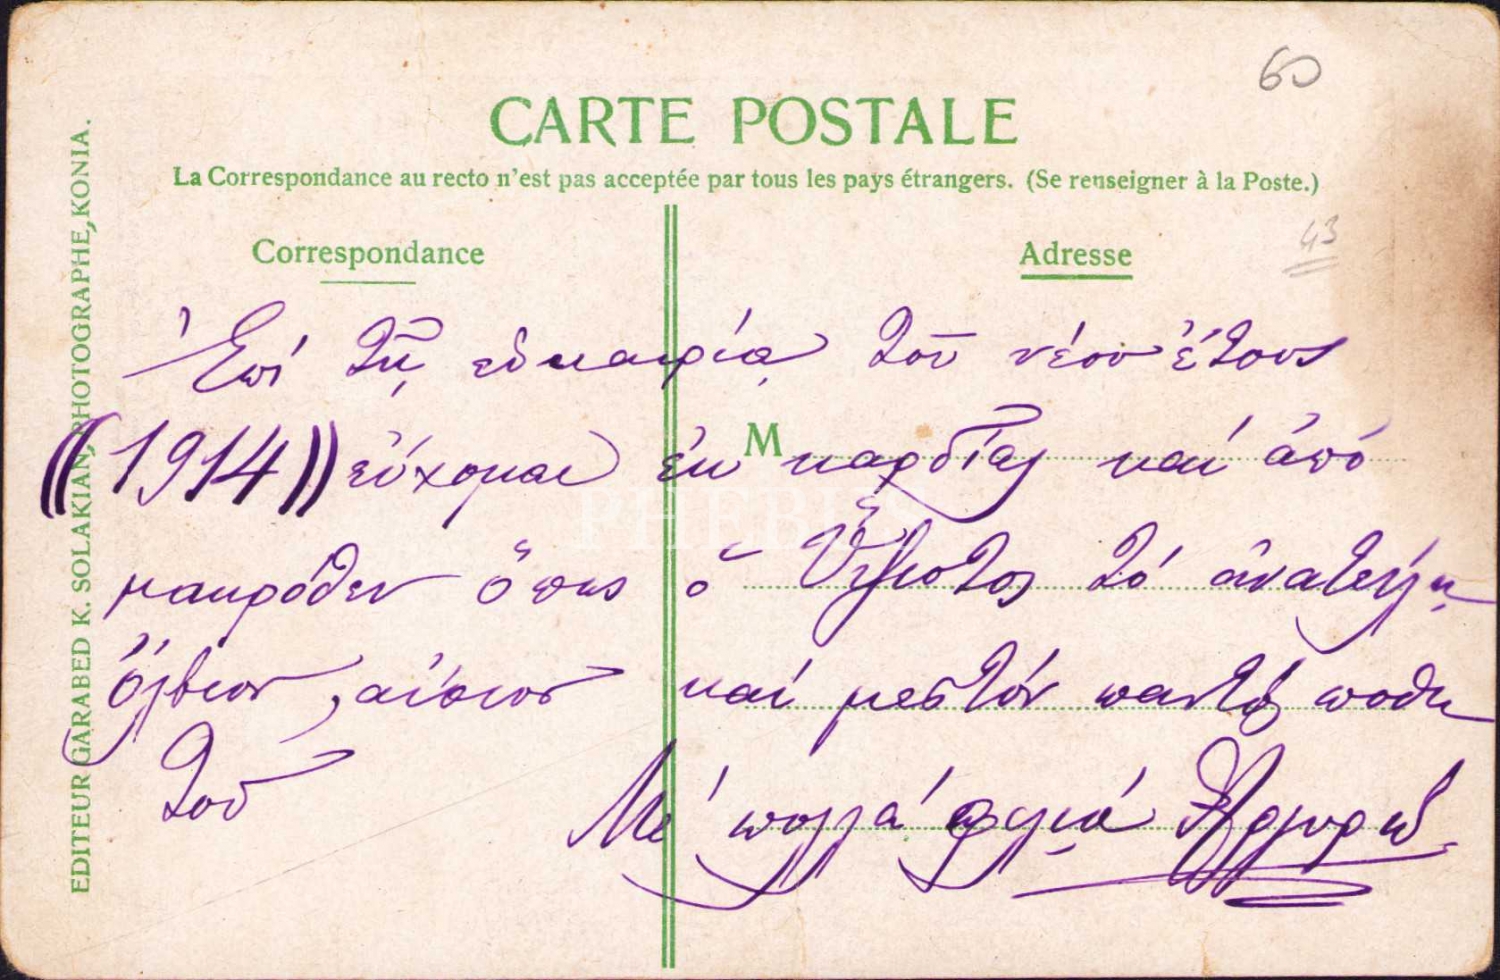 60
CARTE POSTALE
La Correspondance au recto n'est pas acceptée par tous les pays étrangers. (Se renseigner à la Poste.)
43
Correspondance
Adresse
EDITEUR GARABED K. SOLAKIAN, PHOTOGRAPHE, KONIA.
M
Ἐπὶ τῇ εὐκαιρίᾳ τοῦ νέου ἔτους
((1914)) εὔχομαι ἐκ καρδίας καὶ ἀπὸ
μακρόθεν ὅπως ὁ Ὕψιστος τὸ ἀνατείλῃ
ὄλβιον, αἴσιον καὶ μεστὸν παντὸς ποθη
τοῦ
Μὲ πολλὰ φιλιά Ἀργυρώ
PHEBUS